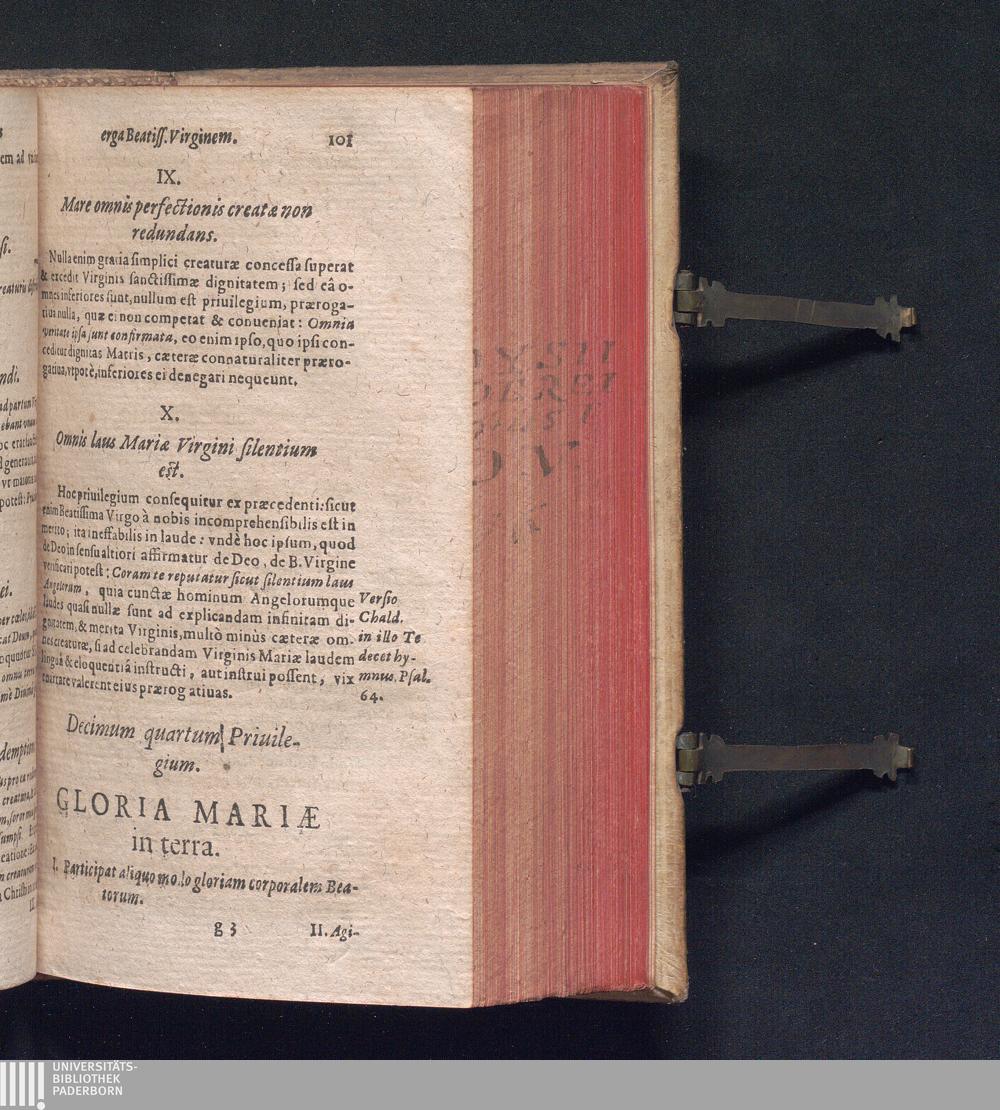 erga Beatiſſ. Virginem. 101
IX.
Mare omnis perfectionis creatæ non
redundans.
Nulla enim gratia ſimplici creaturæ conceſſa ſuperat
& excedit Virginis ſanctiſſimæ dignitatem; ſed eâ o-
mnes inferiores ſunt, nullum eſt priuilegium, præroga-
tiua nulla, quæ ei non competat & conueniat: Omnia
veritate ipſa ſunt confirmata, eo enim ipſo, quo ipſi con-
ceditur dignitas Matris, cæteræ connaturaliter præro-
gatiuæ, vtpotè, inferiores ei denegari nequeunt.
X.
Omnis laus Mariæ Virgini ſilentium
eſt.
Hoc priuilegium conſequitur ex præcedenti: ſicut
enim Beatiſſima Virgo à nobis incomprehenſibilis eſt in
merito; ita ineffabilis in laude: vndè hoc ipſum, quod
de Deo in ſenſu altiori affirmatur de Deo, de B. Virgine
verificari poteſt: Coram te reputatur ſicut ſilentium laus
Angelorum, quia cunctæ hominum Angelorumque
laudes quaſi nullæ ſunt ad explicandam infinitam di-
gnitatem, & merita Virginis, multò minùs cæteræ om-
nes creaturæ, ſi ad celebrandam Virginis Mariæ laudem
linguâ & eloquentiâ inſtructi, aut inſtrui poſſent, vix
enarrare valerent eius prærogatiuas.
Verſio
Chald.
in illo Te
decet hy-
mnus. Pſal.
64.
Decimum quartum Priuile-
gium.
GLORIA MARIÆ
in terra.
I. Participat aliquo modo gloriam corporalem Bea-
torum.
g 3 II. Agi-
UNIVERSITÄTS-
BIBLIOTHEK
PADERBORN